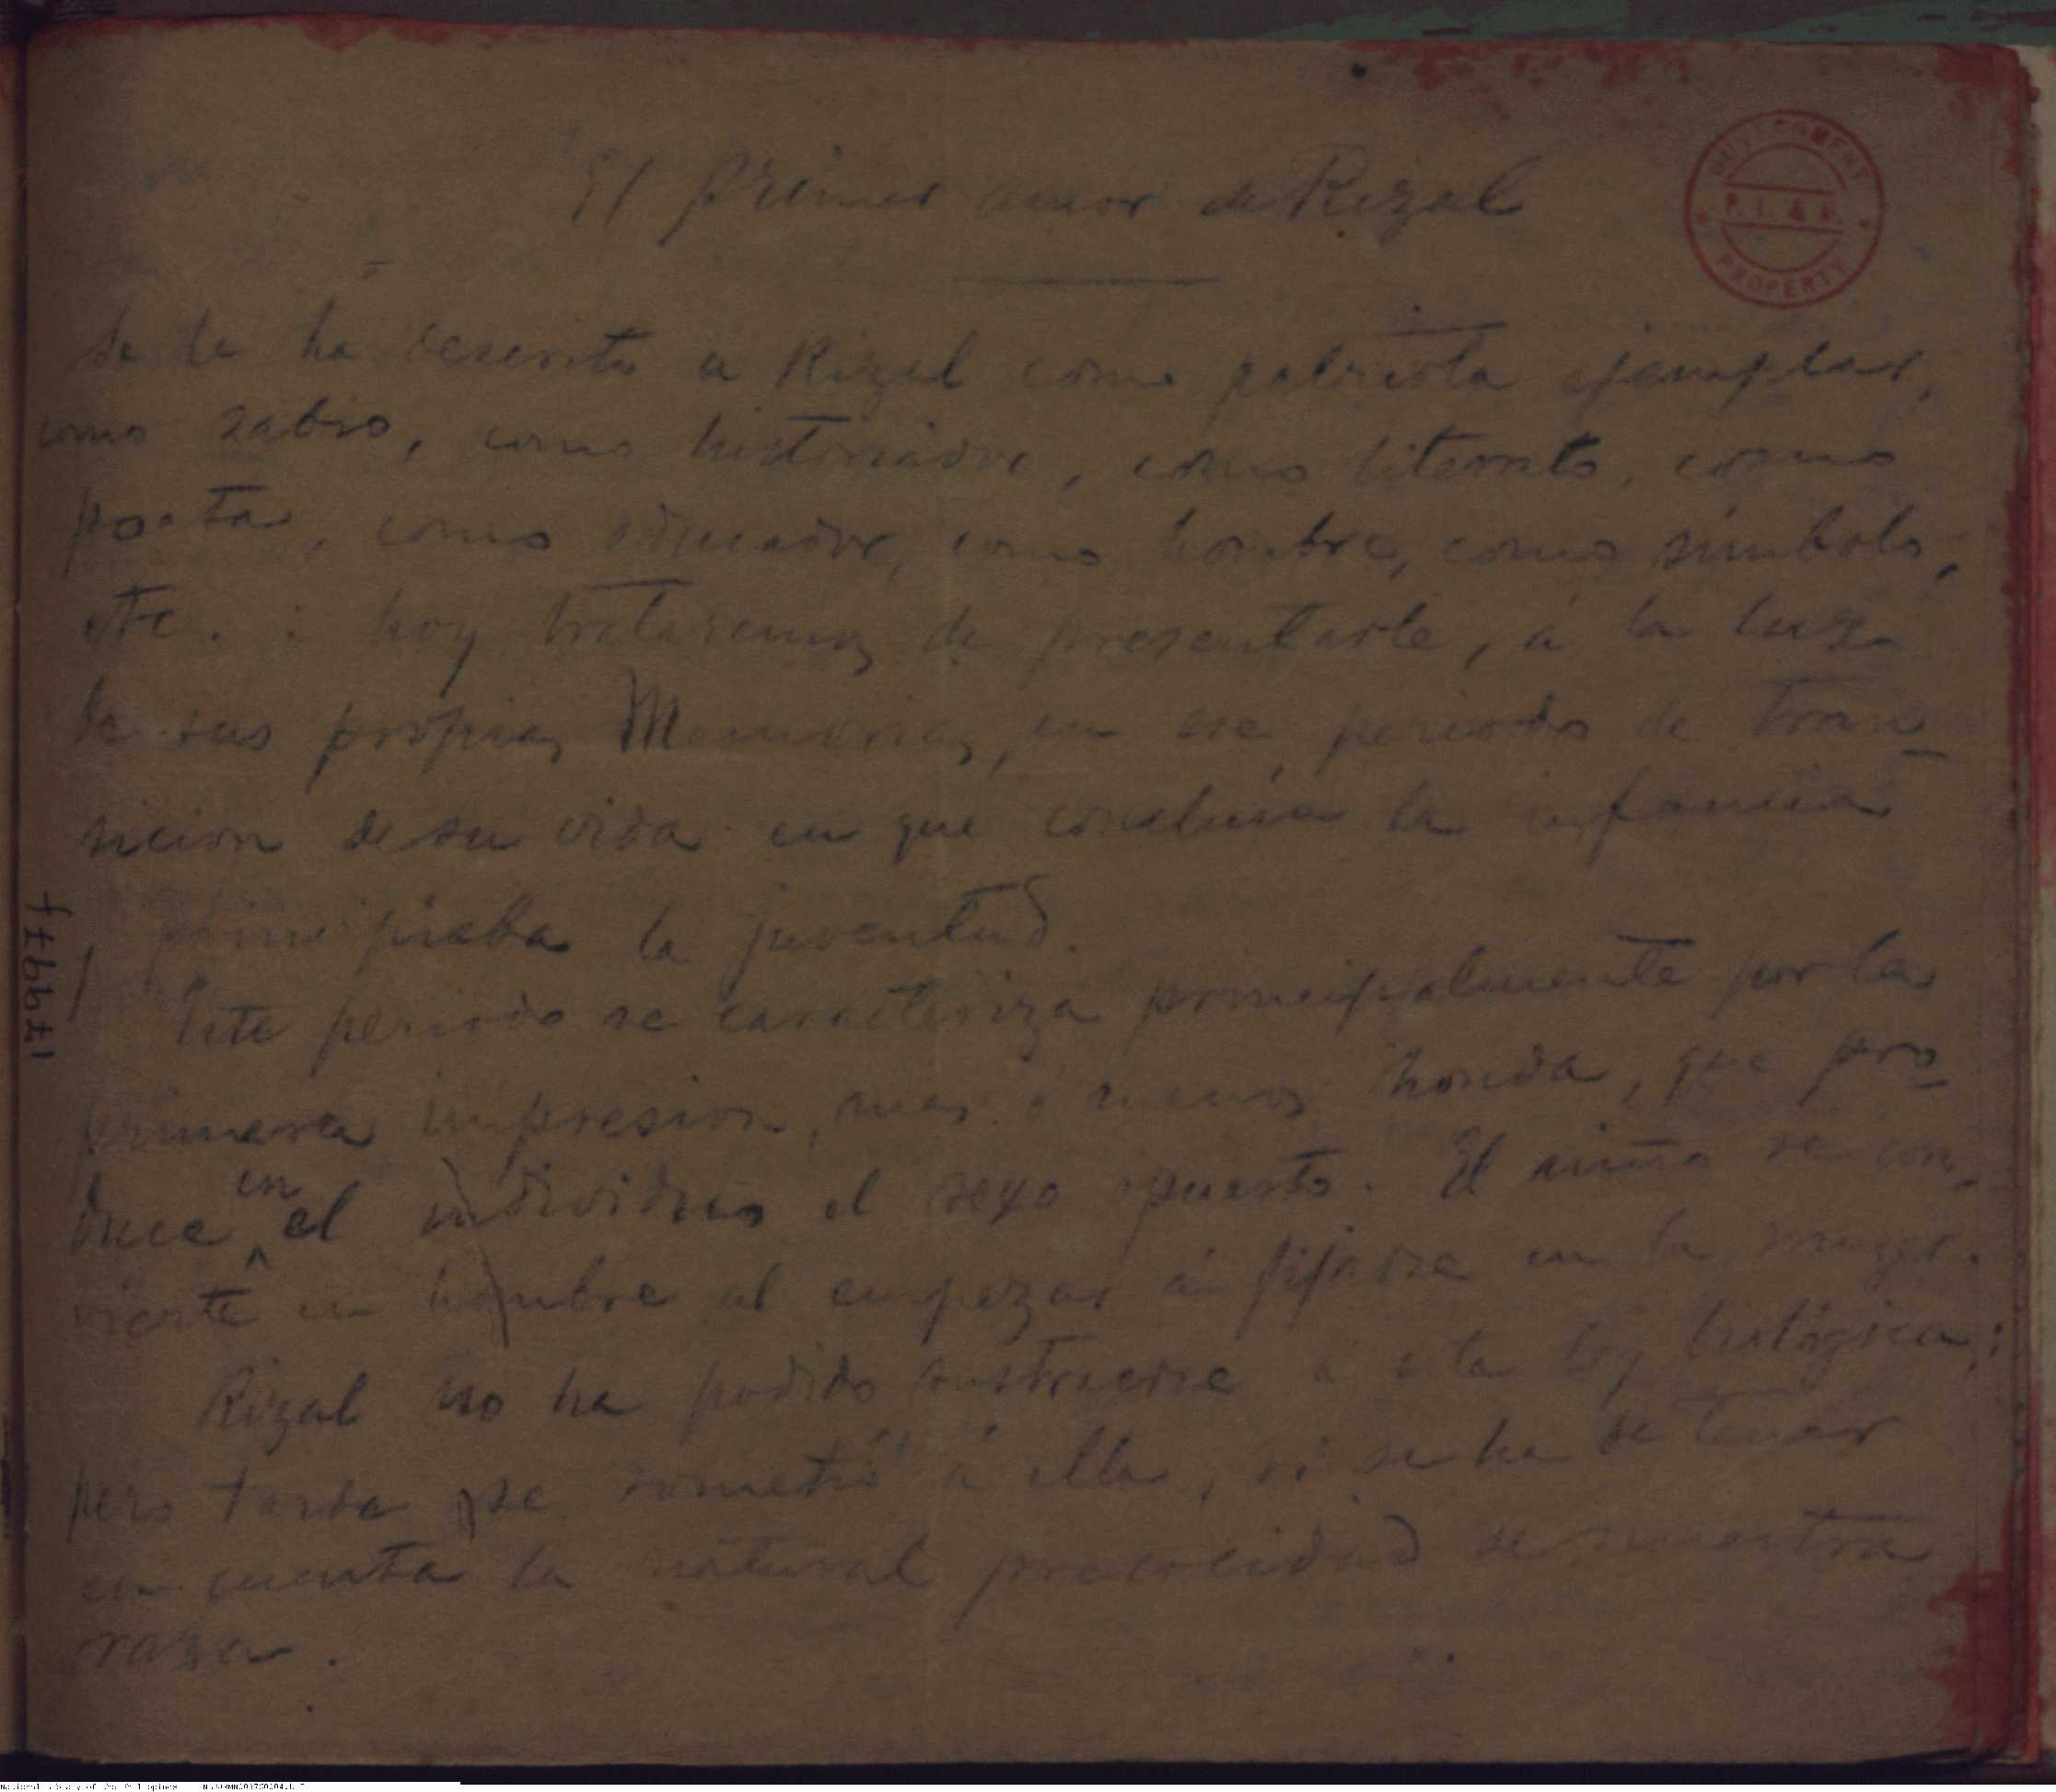 El primer amor de Rizal
GOVERNMENT
P. I. & S.
PROPERTY
Se le ha descrito a Rizal como patriota ejemplar,
como sabio, como historiador, como literato, como
poeta, como educador, como hombre, como símbolo,
etc. : hoy trataremos de presentarle, á la luz
de sus propias Memorias, en ese periodo de tran-
sicion de su vida en que concluía la infancia
y principiaba la juventud.
Este periodo se caracteriza principalmente por la
primera impresion, mas ó menos honda, que pro-
duce en el individuo el sexo opuesto. El niño se con-
vierte en hombre al empezar á fijarse en la muger.
Rizal no ha podido sustraerse á esta ley biológica;
pero tarde se sometió á ella, si se ha de tener
en cuenta la natural precocidad de nuestra
raza.
National Library of the Philippines